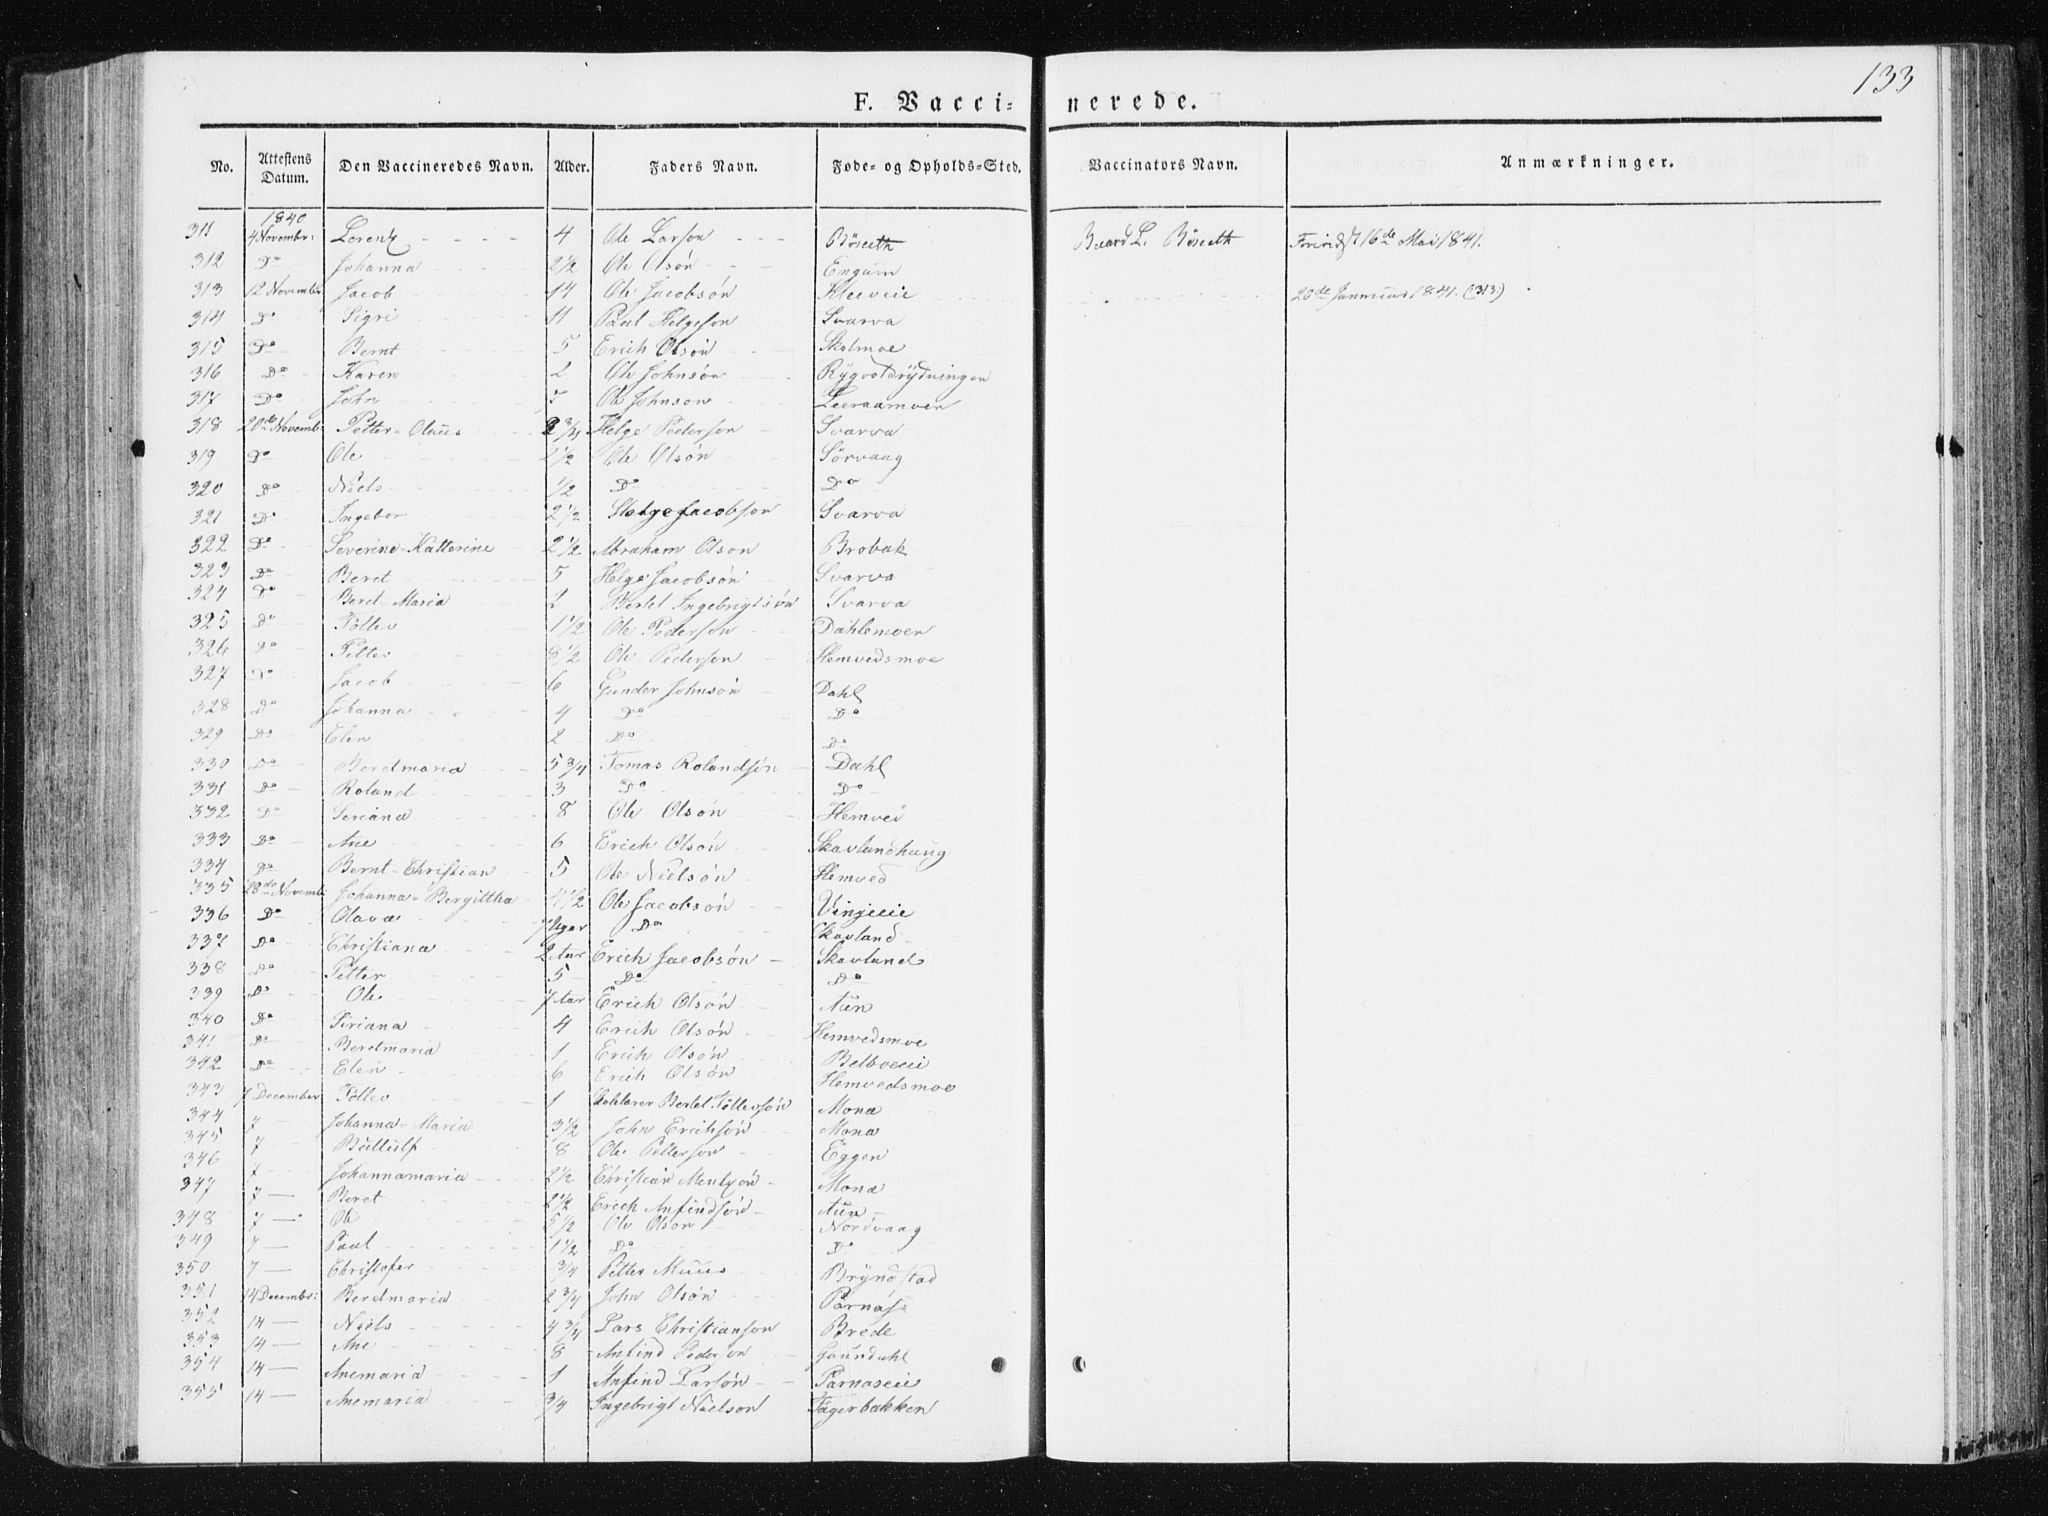 133
F. Vacci- nerede.
No. Attestens Datum. Den Vaccineredes Navn. Alder. Faders Navn. Føde- og Opholds-Sted. Vaccinators Navn. Anmærkninger.
1840
311 4 Novembr: Lorentz 4 Ole Larson Böseth Baard L. Böseth 16de Mai 1841.
312 Do Johanna 2 1/2 Ole Olsön Engum
313 12 November Jacob 14 Ole Jacobsön Kleeveie 20de Januar 1841. (:313:)
314 Do Sigri 11 Paul Helgeson Svarva
315 Do Bernt 5 Erich Olsön Skolmoe
316 Do Karen 2 Ole Johnsön Rygvoldrydningen
317 Do John 7 Ole Johnson Leeraamoen
318 20de Novemb Petter-Olaus 2 3/4 Helge Pederson Svarva
319 Do Ole 2 1/2 Ole Olsön Sörvaag
320 Do Niels 1/2 Do Do
321 Do Ingebor 2 1/2 Helge Jacobson Svarva
322 Do Severine-Katterine 2 1/2 Abraham Olson Brobak
323 Do Beret 5 Helge Jacobsön Svarva
324 Do Beret-Maria 2 Bertel Ingebrigtsön Svarva
325 Do Töllev 1 1/2 Ole Pederson Dahlemoen
326 Do Petter 8 1/2 Ole Pederson Hemvedsmoe
327 Do Jacob 6 Gunder Johnsön Dahl
328 Do Johanna 4 Do Do
329 Do Elen 2 Do Do
330 Do Beretmaria 5 3/4 Tomas Rolandsön Dahl
331 Do Roland 3 Do Do
332 Do Seriana 8 Ole Olsön Hemved
333 Do Ane 6 Erich Olsön Skavlandhaug
334 Do Bernt-Christian 5 Ole Nielsön Hemved
335 28de Novemb Johanna-Bergittha 4 1/2 Ole Jacobsön Vinjeeie
336 Do Olava 7 Uger Do Skavland
337 Do Christiana 2 Aar Erich Jacobsön Skavland
338 Do Petter 5 Do Do
339 Do Ole 7 Aar Erich Olsön Aun
340 Do Siriana 4 Erich Olsön Hemvedsmoe
341 Do Beretmaria 1 Erich Olsön Belboeeie
342 Do Elen 6 Erich Olsön Hemvedsmoe
343 7 December Töllev 1 Bertel Töllevsön Mona
344 7 Johanna-Maria 3 1/2 John Erichsön Mona
345 7 Botulf 8 Ole Petterson Eggen
346 7 Johannamaria 2 1/2 Christian Mentzön Mona
347 7 Beret 2 1/2 Erich Anfindsön Aun
348 7 Ole 5 1/2 Ole Olson Nordvaag
349 7 Paul 1 1/2 Do Do
350 7 Christofer 3/4 Petter Muus Bryndstad
351 14 Decembr: Beretmaria 2 3/4 John Olsön Parnass
352 14 Niels 4 3/4 Lars Christianson Brede
353 14 Ane 8 Anfind Pederson Gaundahl
354 14 Anemaria 1 Anfind Larsön Parnaseie
355 14 Anemaria 3/4 Ingebrigt Nielson Fagerbakken